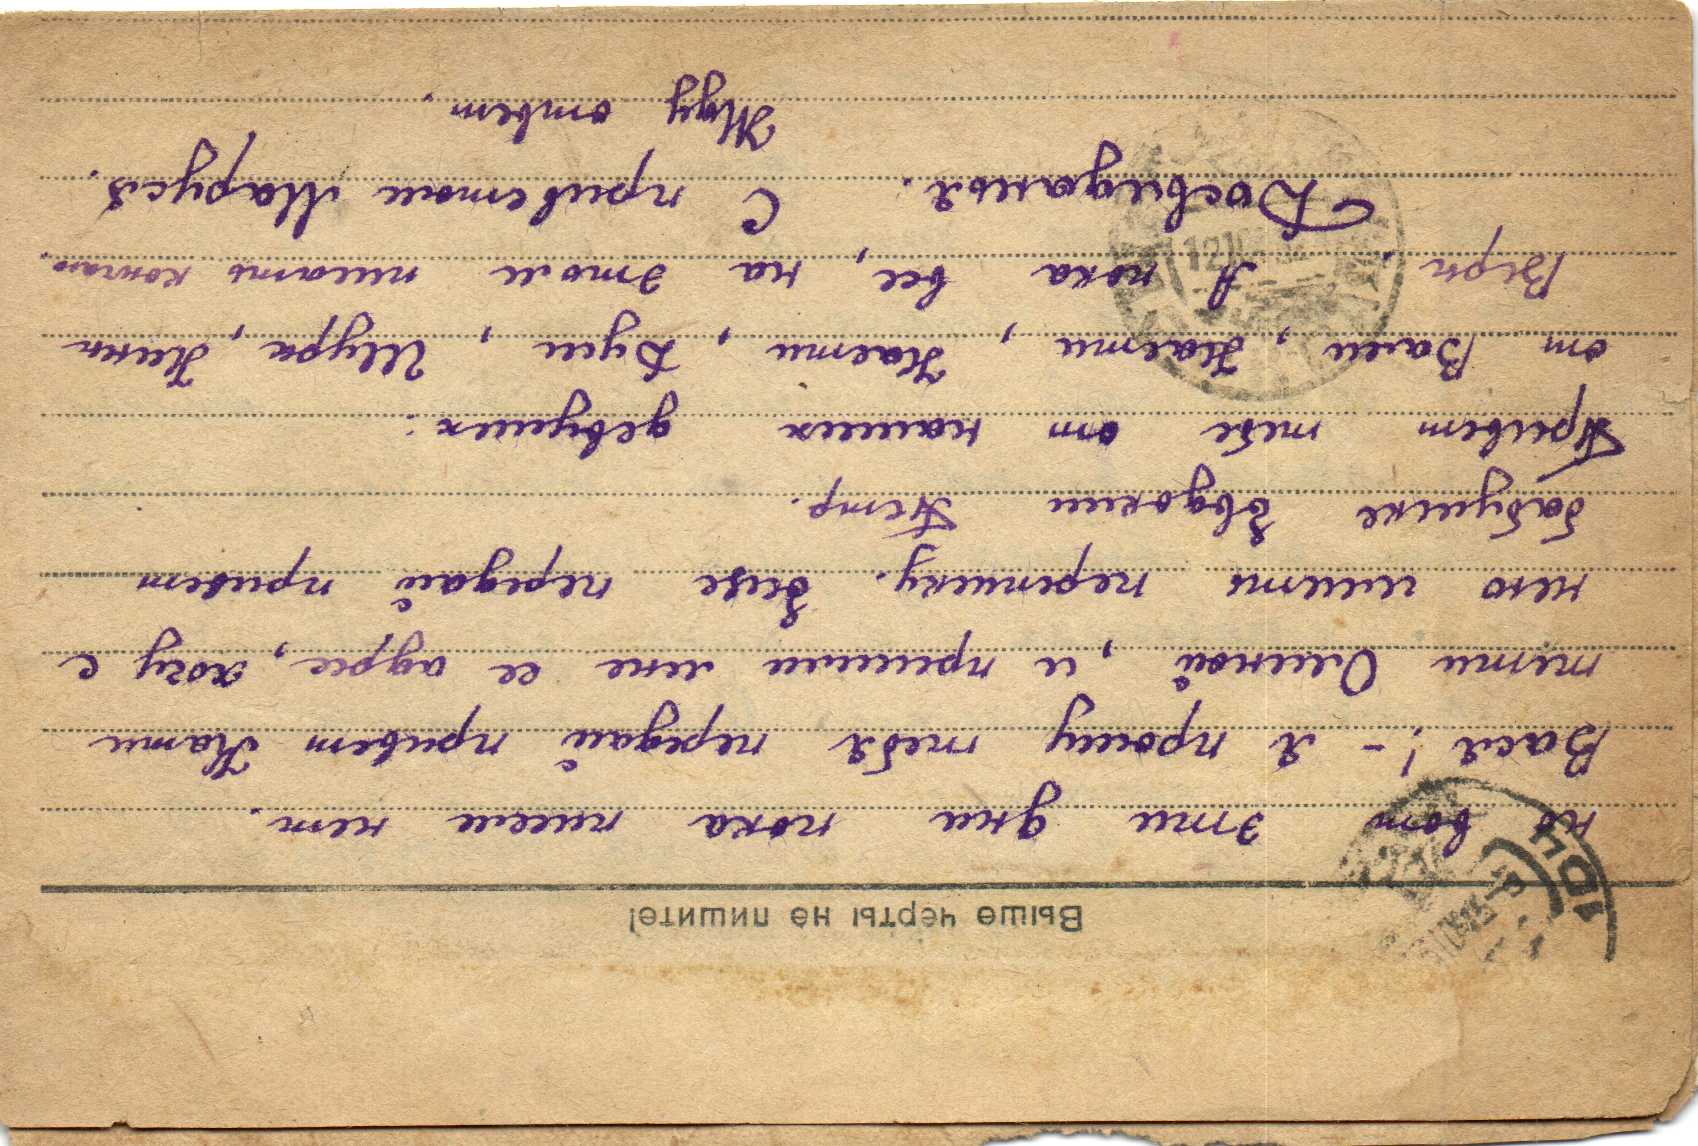 Выше черты не пишите!
но вот эти дни пока писем нет.
Вася! – я прошу тебя передай привет Кати
тети Олиной, и пришли мне ее адрес, хочу с
нею иметь переписку. Еще передай привет
бабушке Евдокии Петр.
Привет тебе от наших девушек:
от Вали, Насти, Кати, Дуси, Шуры, Нины
Веры. А пока все, на этом писать кончаю.
Досвиданья. С приветом Маруся.
Жду ответ.